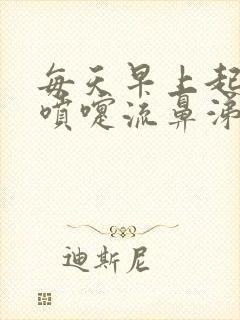 每天早上起
噴嚏流鼻涕
迪斯尼